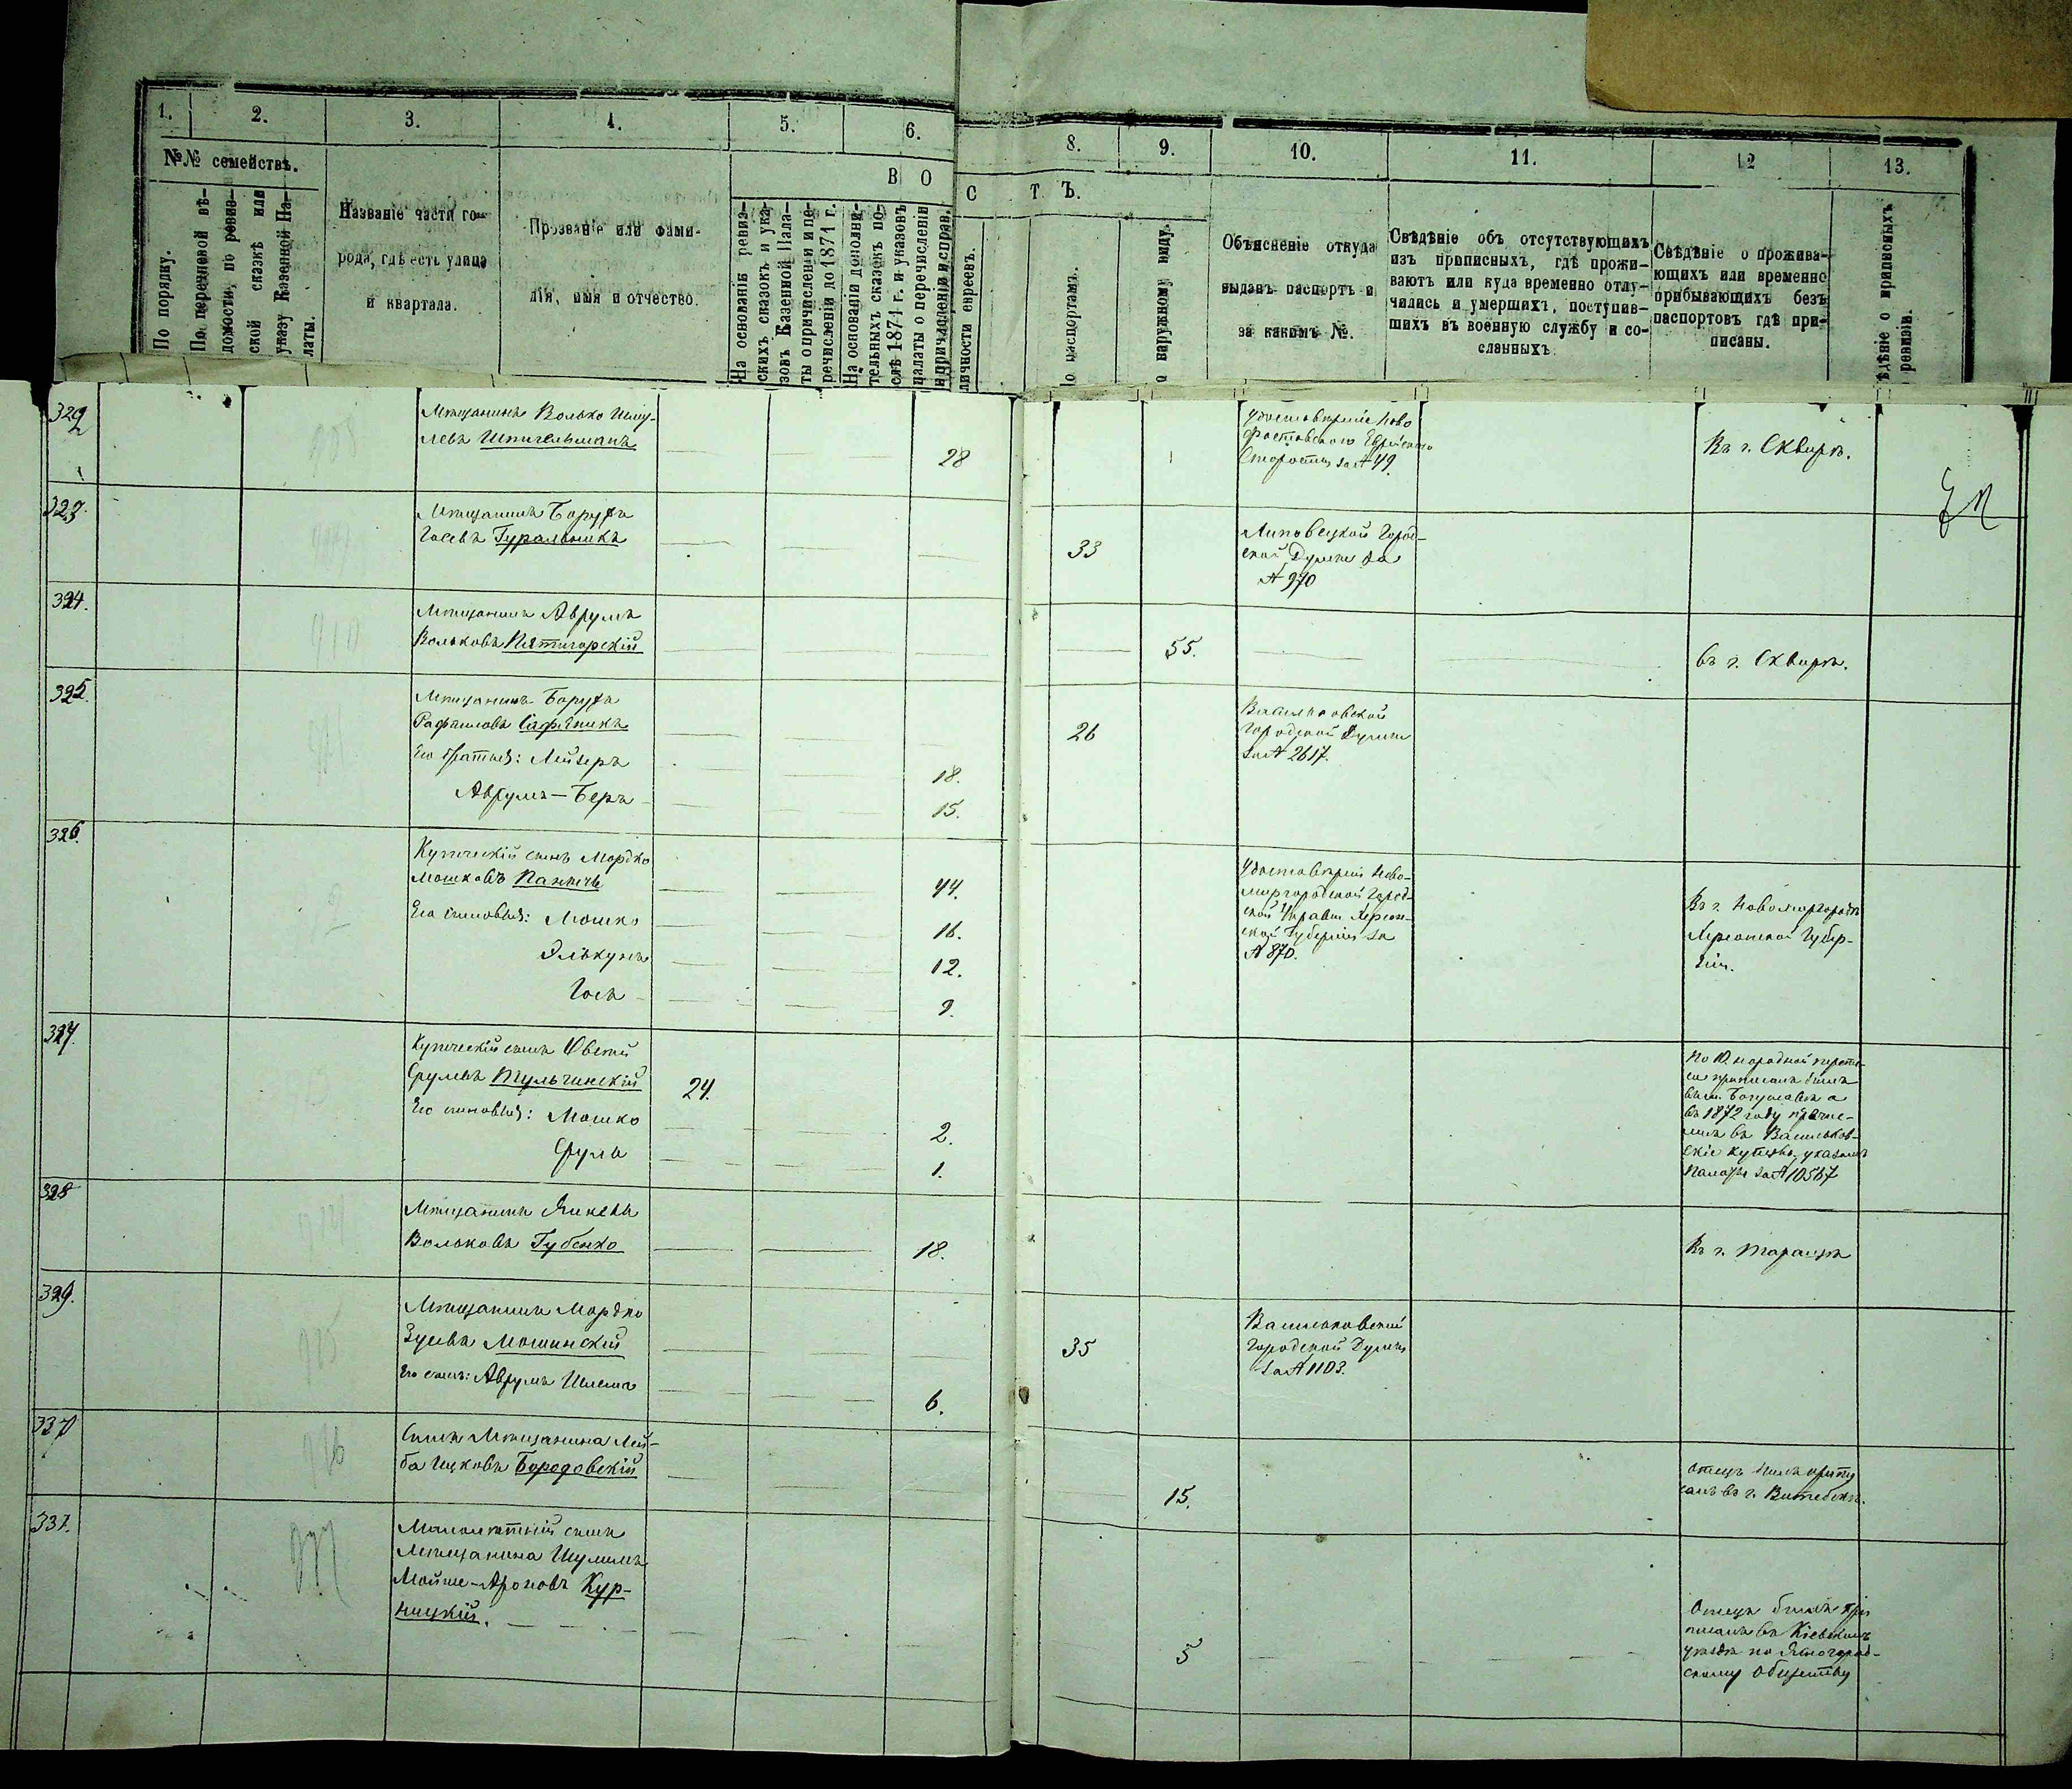 1.
2.
3.
4.
5.
6.
8.
9.
10.
11.
12
13.
№№ семействъ.
В О
С Т Ъ.
По порядку.
По перечневой вѣ-
домости, по ревиз-
ской сказкѣ или
указу Казенной Па-
латы.
Названіе части го-
рода, гдѣ есть улица
и квартала.
Прозваніе или фами-
лія, имя и отчество.
На основаніи ревиз-
скихъ сказокъ и ука-
зовъ Казенной Пала-
ты о причисленіи и пе-
речисленіи до 1871 г.
На основаніи дополни-
тельныхъ сказокъ по-
слѣ 1871 г. и указовъ
палаты о перечисленіи
и причисленіи и справ.
личности евреевъ.
По паспортамъ.
о наружному виду.
Объясненіе откуда
выданъ паспортъ и
за какимъ №.
Свѣдѣніе объ отсутствующихъ
изъ приписныхъ, гдѣ прожи-
ваютъ или куда временно отлу-
чились и умершихъ, поступив-
шихъ въ военную службу и со-
сланныхъ.
Свѣдѣніе о прожива-
ющихъ или временно
прибывающихъ безъ
паспортовъ гдѣ при-
писаны.
ѣдѣніе о приписныхъ
ревизіи.
322
908
Мѣщанинъ Волько
левъ Шпигельманъ
28
Удостовѣреніе Ново
фастовского Еврейского
Старосты за № 49.
Въ г. Сквирѣ.
323.
909
Мѣщанинъ Борухъ
Іосевъ Гуральникъ
33
Липовецкой Город-
ской Думы за
№ 970
324.
910
Мѣщанинъ Аврумъ
Вольковъ Пятигорскій
55.
въ г. Сквирѣ.
325.
911
Мѣщанинъ Борухъ
Рафаиловъ Сафьяникъ
26
Васильковской
Городской Думы
за № 2617.
Его братья: Лейзеръ
18.
Аврумъ-Беръ
15.
326.
Купеческій сынъ Мордко
Мошковъ
44.
Удостовѣреніе Ново-
миргородской Город-
ской Управы Херсон-
ской Губерніи за
№ 870.
Въ г. Новомиргородѣ
Херсонской Губер-
ніи.
Его сыновья: Мошко
16.
Элькунъ
12.
Іосъ
9.
327.
Купеческій сынъ Овсѣй
Срулевъ Тульчинскій
24.
Его сыновья: Мошко
2.
Сруль
1.
По 10 народной перепи-
си приписанъ былъ
въ м. Богуславѣ а
въ 1872 году
въ Васильков-
скіе купцы, указомъ
Палаты за № 10567
328
914
Мѣщанинъ Янкель
Вольковъ Губенко
18.
Въ г. Таращѣ
329.
915
Мѣщанинъ Мордко
Зусевъ Мошинскій
35
Васильковской
Городской Думы
за № 1103.
Его сынъ: Аврумъ Шлема
6.
330
916
Сынъ Мѣщанина Лей-
ба Ицковъ Бородовскій
15.
Отецъ
въ г. Витебскѣ.
331.
917
Малолѣтній сынъ
Мѣщанина Шулимъ
Мойше-Ароновъ Кур-
ницкій.
5
Отецъ былъ при
писанъ въ Кіевскомъ
уѣздѣ по
скому Обществу